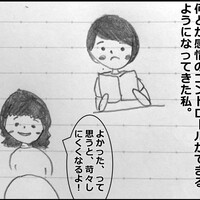 何とか感情のコントロールができる
ようになってきた私。
よかった、って
思うと、苛々し
にくくなるよ！